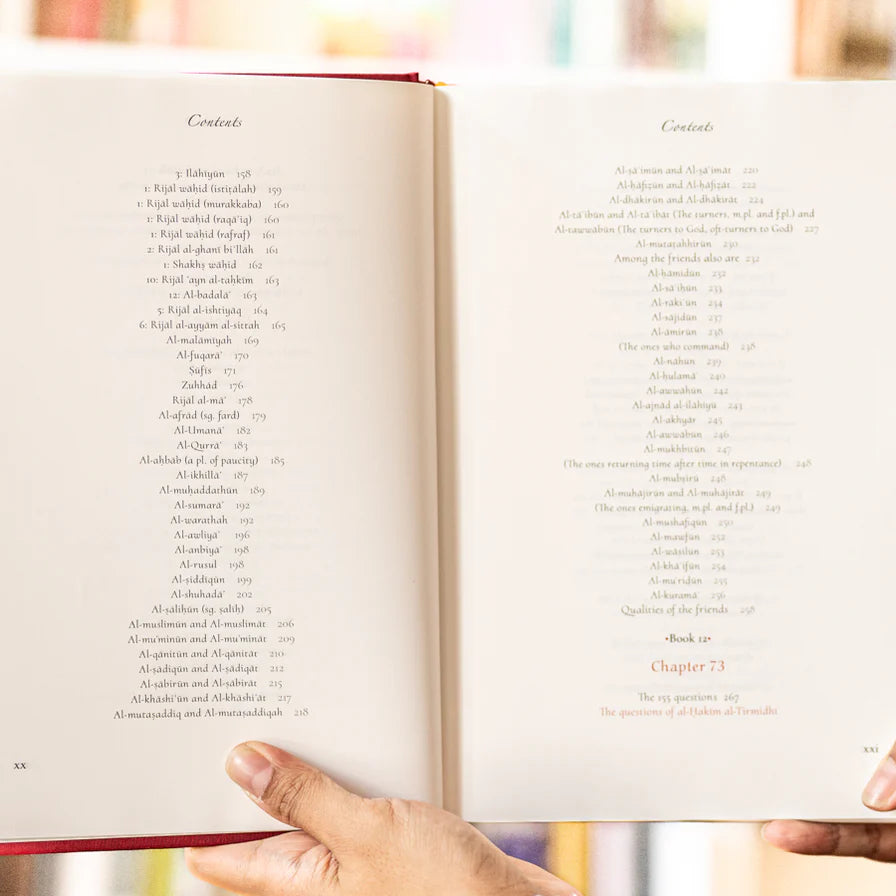 Contents
3: Ilāhīyūn 158
1: Rijāl wāḥid (istiṭālah) 159
1: Rijāl wāḥid (murakkaba) 160
1: Rijāl wāḥid (raqā'iq) 160
1: Rijāl wāḥid (rafraf) 161
2: Rijāl al-ghanī bi'llāh 161
1: Shakhṣ wāḥid 162
10: Rijāl 'ayn al-taḥkīm 163
12: Al-badalā' 163
5: Rijāl al-ishtiyāq 164
6: Rijāl al-ayyām al-sittah 165
Al-malāmīyah 169
Al-fuqarā' 170
Ṣūfīs 171
Zuhhād 176
Rijāl al-mā' 178
Al-afrād (sg. fard) 179
Al-Umanā' 182
Al-Qurrā' 183
Al-aḥbāb (a pl. of paucity) 185
Al-ikhillā' 187
Al-muḥaddathūn 189
Al-sumarā' 192
Al-warathah 192
Al-awliyā' 196
Al-anbiyā' 198
Al-rusul 198
Al-ṣiddīqūn 199
Al-shuhadā' 202
Al-ṣāliḥūn (sg. ṣāliḥ) 205
Al-muslimūn and Al-muslimāt 206
Al-mu'minūn and Al-mu'mināt 209
Al-qānitūn and Al-qānitāt 210
Al-ṣādiqūn and Al-ṣādiqāt 212
Al-ṣābirūn and Al-ṣābirāt 215
Al-khāshi'ūn and Al-khāshi'āt 217
Al-mutaṣaddiq and Al-mutaṣaddiqah 218
xx
Contents
Al-ṣā'imūn and Al-ṣā'imāt 220
Al-ḥāfiẓūn and Al-ḥāfiẓāt 222
Al-dhākirūn and Al-dhākirāt 224
Al-tā'ibūn and Al-tā'ibāt (The turners, m.pl. and f.pl.) and
Al-tawwābūn (The turners to God, oft-turners to God) 227
Al-mutaṭahhirūn 230
Among the friends also are 232
Al-ḥāmidūn 232
Al-sā'iḥūn 233
Al-rāki'ūn 234
Al-sājidūn 237
Al-āmirūn 238
(The ones who command) 238
Al-nāhūn 239
Al-ḥulamā' 240
Al-awwāhūn 242
Al-ajnād al-ilāhīyū 243
Al-akhyār 245
Al-awwābūn 246
Al-mukhbitūn 247
(The ones returning time after time in repentance) 248
Al-mubṣirū 248
Al-muhājirūn and Al-muhājirāt 249
(The ones emigrating, m.pl. and f.pl.) 249
Al-mushafiqūn 250
Al-mawfūn 252
Al-wāṣilūn 253
Al-khā'ifūn 254
Al-mu'riḍūn 255
Al-kuramā' 256
Qualities of the friends 258
•Book 12•
Chapter 73
The 155 questions 267
The questions of al-Ḥakīm al-Tirmidhī
xxi